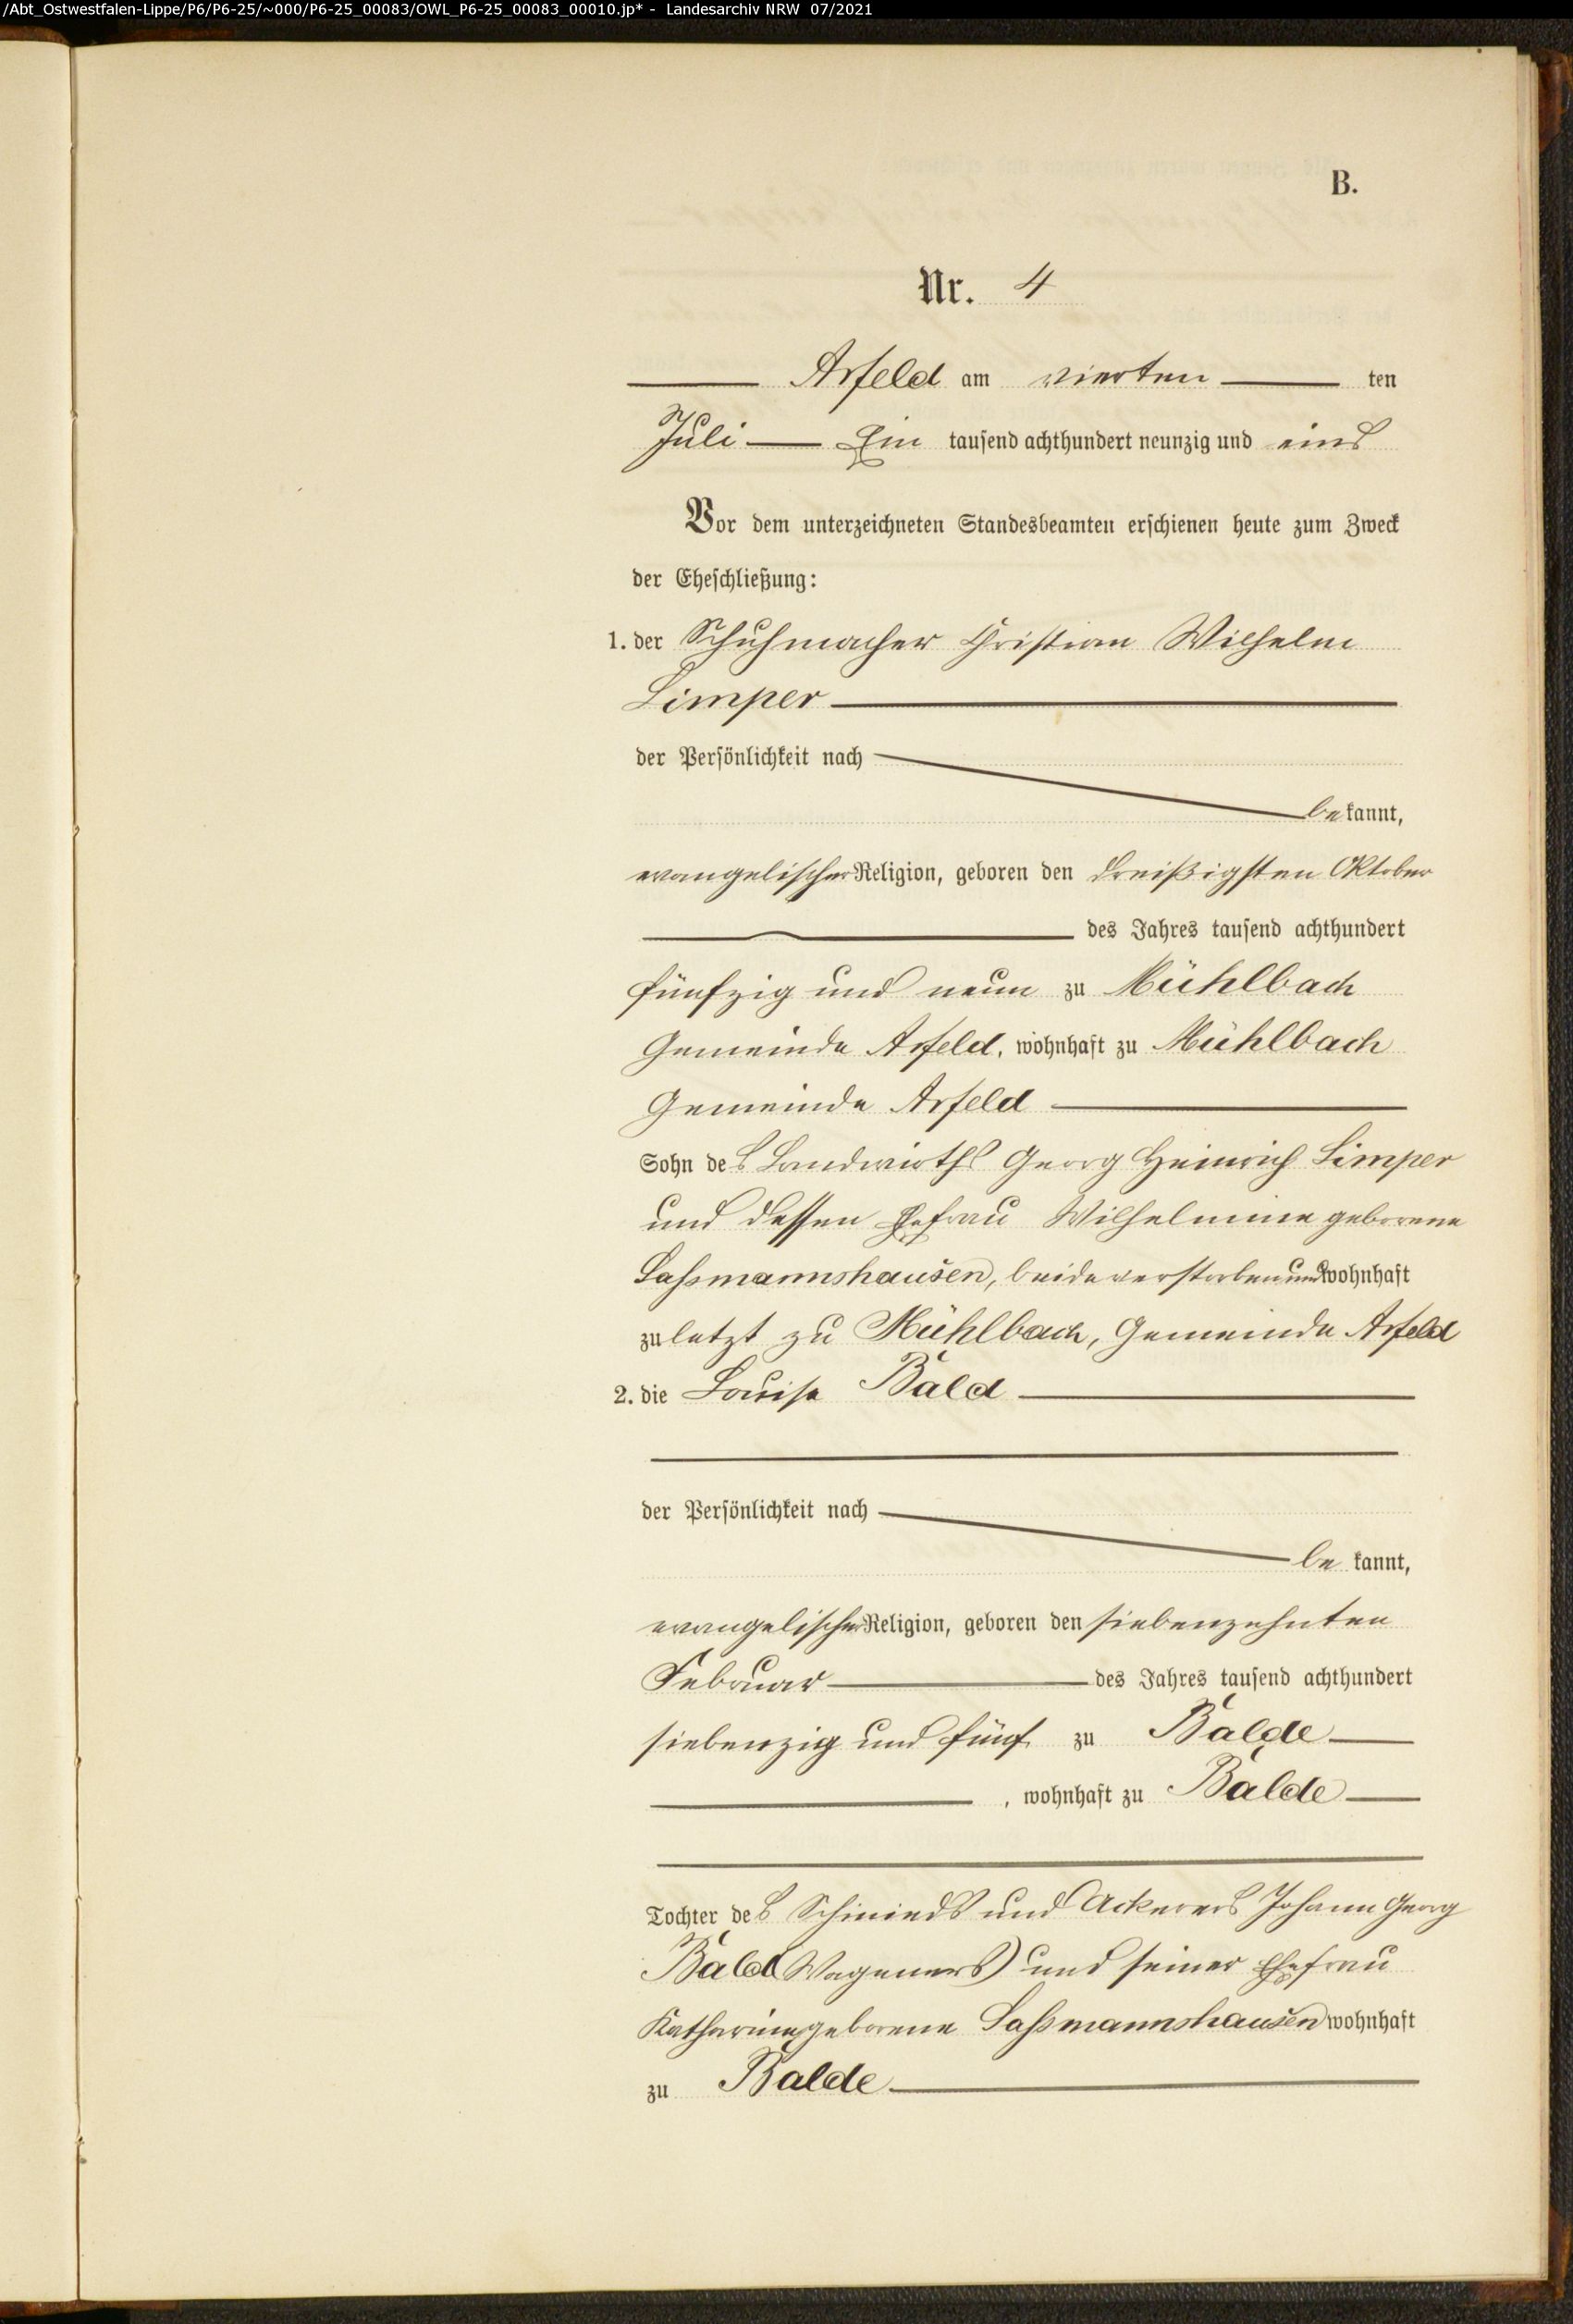 /Abt_Ostwestfalen-Lippe/P6/P6-25/~000/P6-25_00083/OWL_P6-25_00083_00010.jp* - Landesarchiv NRW 07/2021
B.
Nr. 4
Arfeld am vierten ten
Juli Ein tausend achthundert neunzig und eins
Vor dem unterzeichneten Standesbeamten erschienen heute zum Zweck
der Eheschließung:
1. der Schuhmacher Christian Wilhelm
Limper
der Persönlichkeit nach
bekannt,
evangelischer Religion, geboren den dreißigsten Oktober
des Jahres tausend achthundert
fünfzig und neun zu Mühlbach
Gemeinde Arfeld, wohnhaft zu Mühlbach
Gemeinde Arfeld
Sohn des Landwirths Georg Heinrich Limper
und dessen Ehefrau Wilhelmine geborene
Laßmannshausen, beide verstorben und wohnhaft
zuletzt zu Mühlbach, Gemeinde Arfeld
2. die Louise Bald
der Persönlichkeit nach
be kannt,
evangelischer Religion, geboren den siebenzehnten
Februar des Jahres tausend achthundert
siebenzig und fünf zu Balde
, wohnhaft zu Balde
Tochter des Schmieds und Ackerers Johann Georg
Bald (Wageners) und seiner Ehefrau
Katharine geborene Laßmannshausen wohnhaft
zu Balde